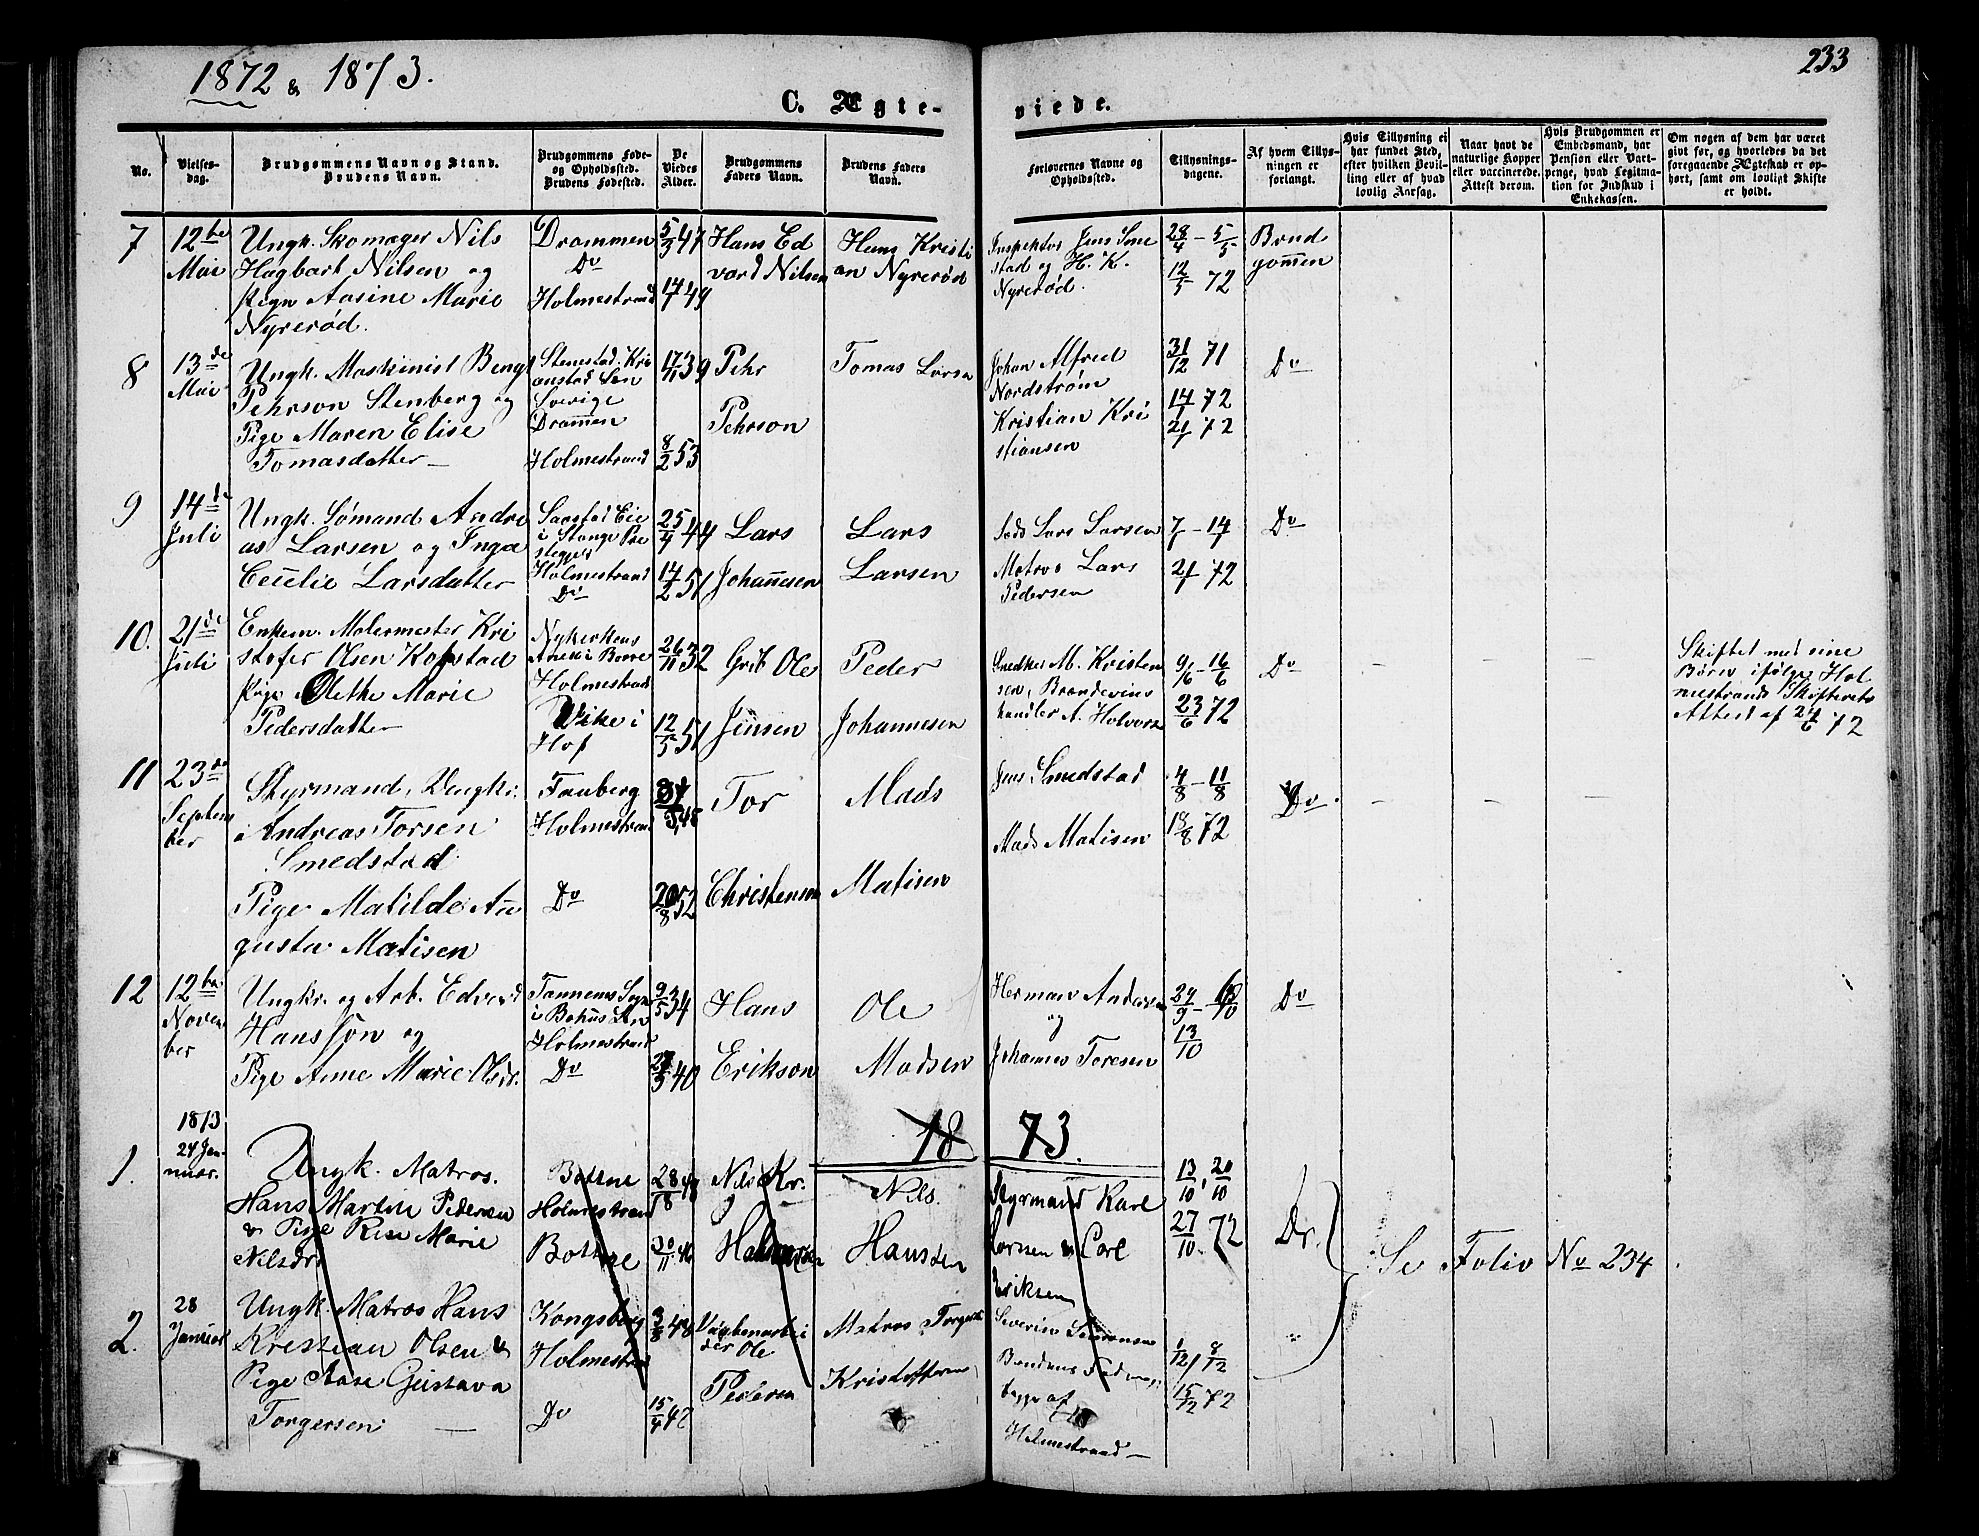 1872 & 1873.
233
C. Ægte-
viede.
No.
Vielses-
dag.
Brudgommens Navn og Stand.
Brudens Navn.
Brudgommens Føde-
og Opholdssted.
Brudens Fødested.
De
Viedes
Alder.
Brudgommens
Faders Navn.
Brudens Faders
Navn.
Forlovernes Navne og
Opholdssted.
Tillysnings-
dagene.
Af hvem Tillys-
ningen er
forlangt.
Hvis Tillysning ei
har fundet Sted,
efter hvilken Bevil-
ling eller af hvad
lovlig Aarsag.
Naar havt de
naturlige Kopper
eller vaccinerede.
Attest derom.
Hvis Brudgommen er
Embedsmand, har
Pension eller Vart-
penge, hvad Legitima-
tion for Indskud i
Enkekassen.
Om nogen af dem har været
givt før, og hvorledes da det
foregaaende Ægteskab er op-
hørt, samt om lovligt Skifte
er holdt.
7
12te
Mai
Ungk. Skomager Nils
Hagbart Nilsen og
Pige Aasine Marie
Nyrerød.
Drammen
Do
Holmestrand
5/3 47
14/7 49
Hans Ed
vard Nilsen
Hans Kristi
an Nyrerød
Inspektør Jens Sme
stad og H. K.
Nyrerød.
28/4 - 5/5
12/5 72
Brud
gommen
8
13de
Mai
Ungk. Maskinist Bengt
Pehrson Stenberg og
Pige Maren Elise
Tomasdatter
Stenestad, Kri
anstad Len
Sverige
Drammen
Holmestrand
17/11 39
8/2 53
Pehr
Pehrson
Tomas Larsen
Johan Alfred
Nordstrøm
Kristian Kri
stiansen
31/12 71
14/1 72
21/1 72
Do
9
14de
Juli
Ungk. Sømand Andre
as Larsen og Inga
Cecilie Larsdatter
Saastad Eie
i Stange Pre
stegjæld
Holmestrand
Do
25/4 44
14/2 51
Lars
Johannesen
Lars
Larsen
Lods Lars Larsen
Matros Lars
Pedersen
7 - 14/7
21/7 72
Do
10.
21de
Juli
Enkem. Malermester Kri
stofer Olsen Kopstad
Pige Olethe Marie
Pedersdatter
Nykerkens
Anex i Borre
Holmestrand
Vike i
Hof
26/11 32
12/5 51
Grb Ole
Jensen
Peder
Johannesen
Snedker M. Kristen
sen, Brændevins
handler A. Holvorsen
9/6 - 16/6
23/6 72
Do
Skiftet med sine
Børn ifølge Hol
mestrands Skifterets
Attest af 24/6 72
11
23de
Septem
ber
Styrmand, Ungk.
Andreas Torsen
Smedstad
Pige Matilde Au
gusta Matisen
Fauberg
Holmestrand
Do
20/8 52
Tor
Christensen
Mads
Matisen
Jens Smedstad
Mads Matisen
4/8 - 11/8
18/8 72
Do
12
12te
Novem
ber
Ungkr. og Arb. Edvard
Hansson og
Pige Anne Marie Olsdr.
Tannems Sogn
i Bohus Len
Holmestrand
Do
9/5 34
27/5 40
Hans
Erikson
Ole
Madsen
Herman Andersen
og
Johannes Toresen
29/9 - 6/10
13/10
Do
18 73.
1873
1.
24 Jan-
nuar.
Ungk. Matros.
Hans Martin Pedersen
& Pige Rise Marie
Nilsdr.
Bottne
Holmestrand
Bottne
28/8 48
30/11 46
Nils Kr.
Nils.
Hansen
Styrmand Karl
Larsen & Carl
Eriksen
13/10, 20/10
27/10 72
Do.
Se Folio No 234
2.
28
Januar
Ungk. Matros Hans
Kristian Olsen &
Pige Aase Gustava
Torgersen
Kongsberg
Holmestrand
Do
3/3 48
15/4 42
Ole
Pedersen
Matros Torger
Kristoffersen
Severin Simonsen
Brudens Fader
begge af
Holmestrand
1/12, 8/12
15/12 72